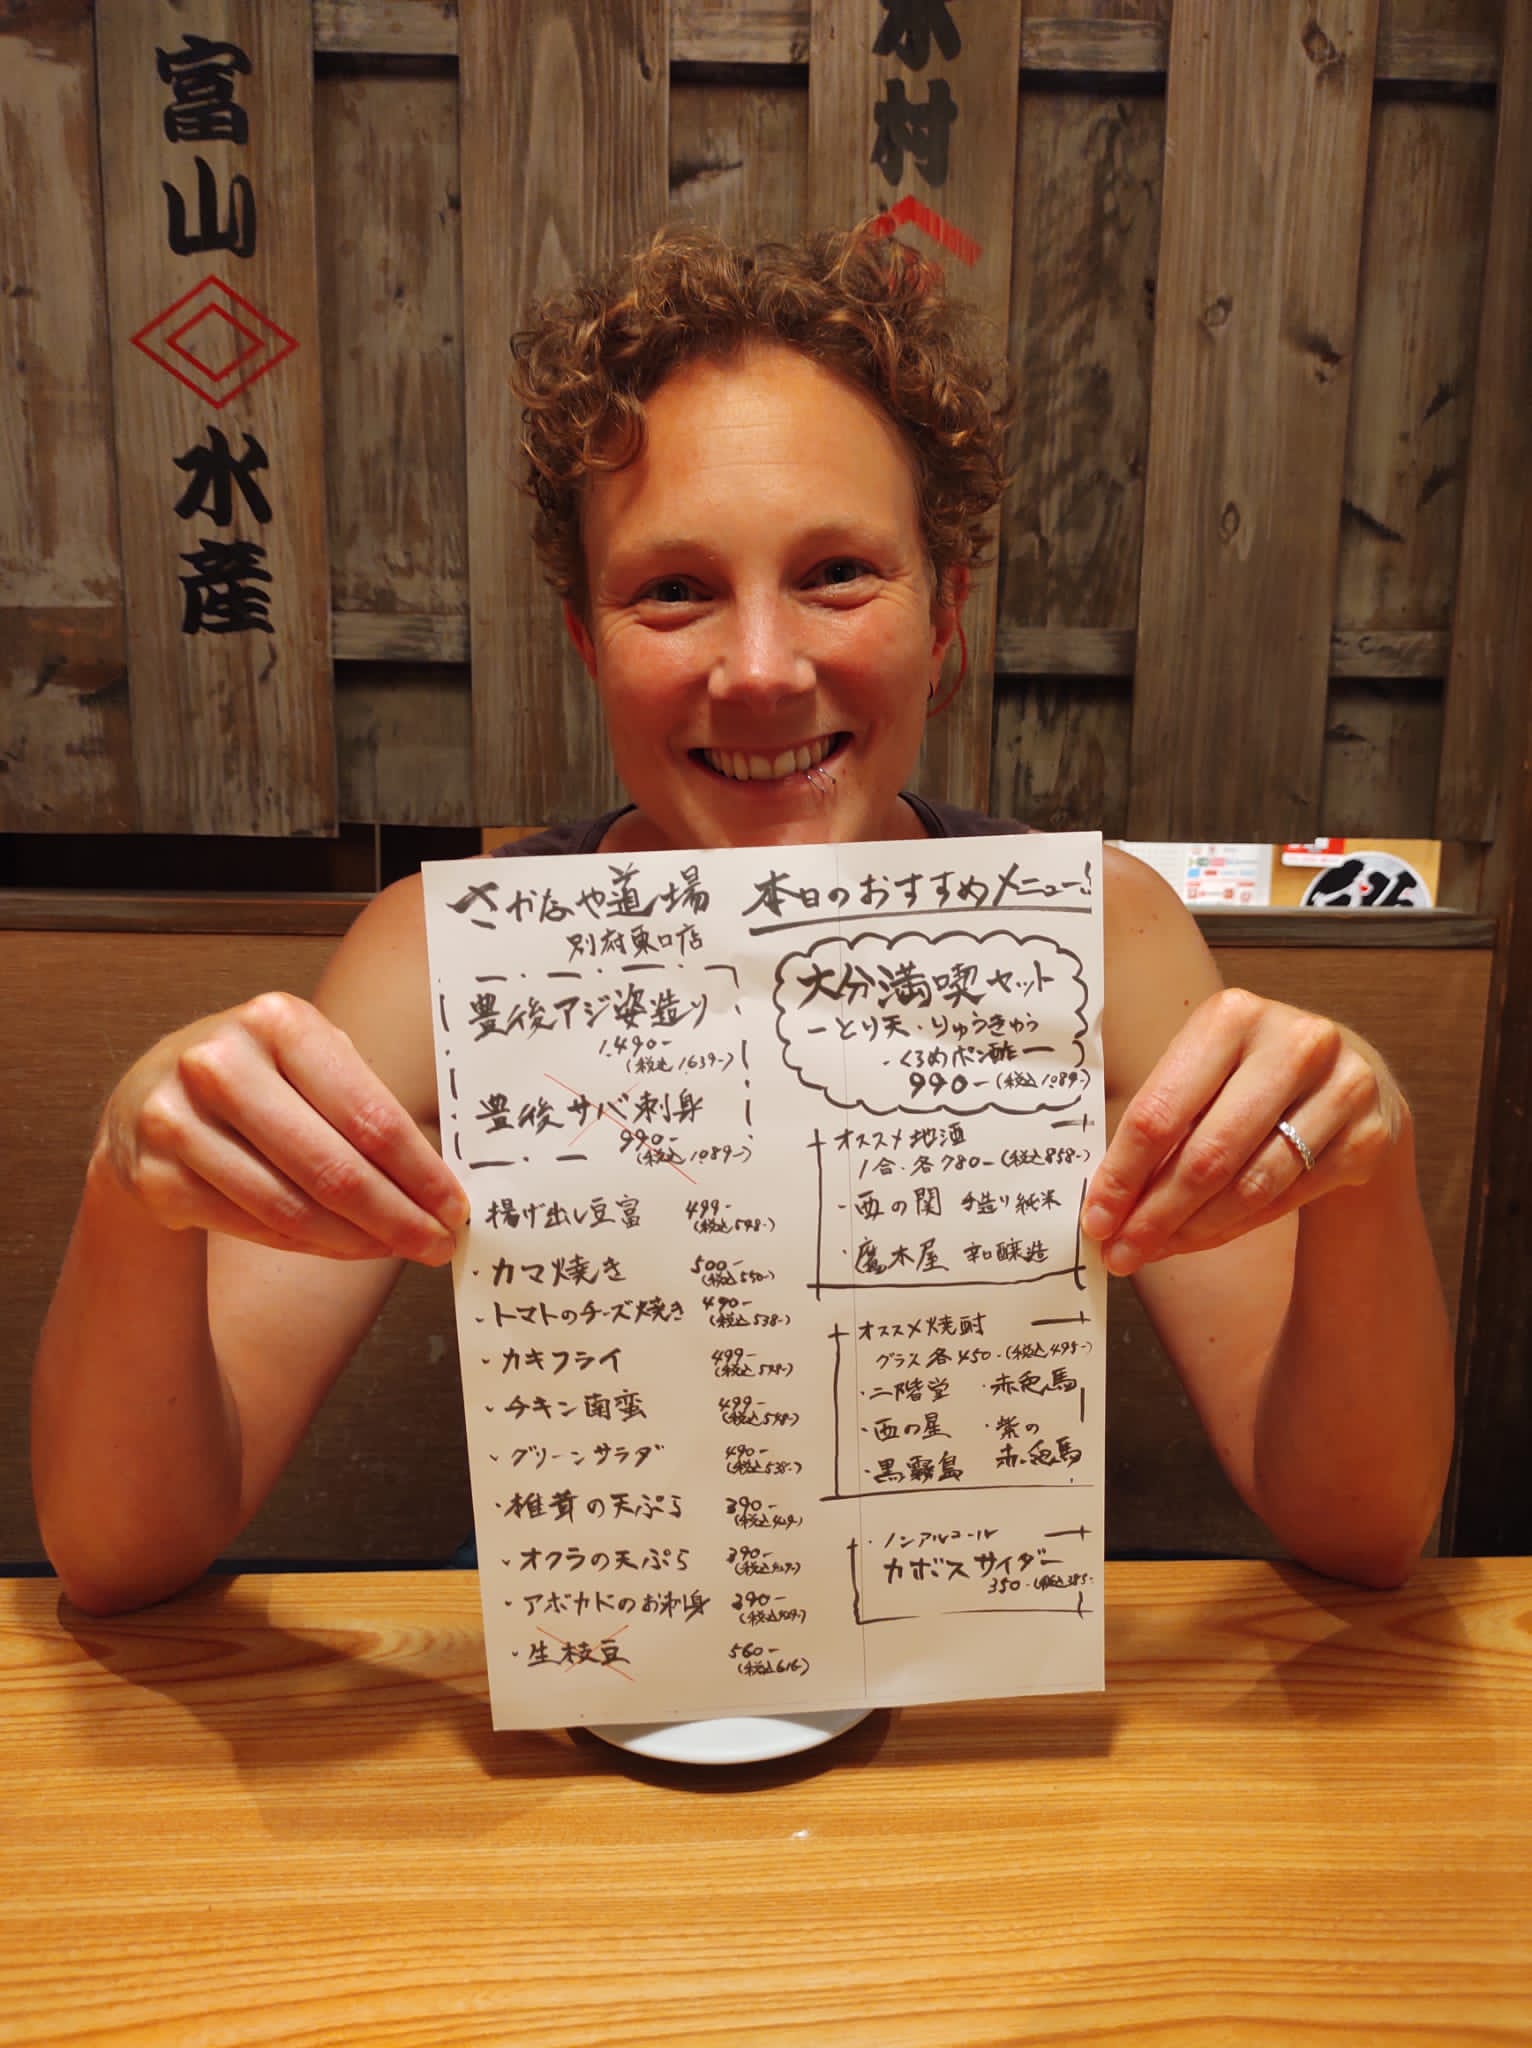 富山
水産
木村
さかなや道場
別府東口店
本日のおすすめメニュー!
豊後アジ姿造り
1,490-
(税込1,639-)
豊後サバ刺身
990-
(税込1,089-)
・揚げ出し豆富 499-
(税込548-)
・カマ焼き 500-
(税込550-)
・トマトのチーズ焼き 490-
(税込538-)
・カキフライ 499-
(税込548-)
・チキン南蛮 499-
(税込548-)
・グリーンサラダ 490-
(税込538-)
・椎茸の天ぷら 390-
(税込429-)
・オクラの天ぷら 390-
(税込429-)
・アボカドのお刺身 390-
(税込429-)
・生枝豆 560-
(税込616-)
大分満喫セット
ーとり天・りゅうきゅう
・くろめポン酢ー
990-(税込1,089-)
オススメ地酒
1合・各780-(税込858-)
・西の関 手造り純米
・鷹来屋 辛口醸造
オススメ焼酎
グラス各450-(税込495-)
・二階堂 ・赤兎馬
・西の星 ・紫の
赤兎馬
・黒霧島
・ノンアルコール
カボスサイダー
350-(税込385-